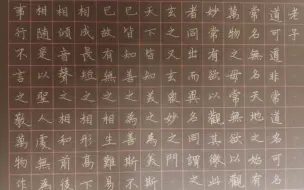 老子
道可道非常道名可名非
常名無名天地之始有名
萬物之母常無欲以觀其
妙常有欲以觀其徼此兩
者同出而異名同謂之玄
玄之又玄衆妙之門
天下皆知美之為美斯惡
已皆知善之為善斯不善
已故有無之相生難易之
相成長短之相形高下之
相傾音聲之相和前後之
相隨是以聖人處無為之
事行不言之教萬物作焉